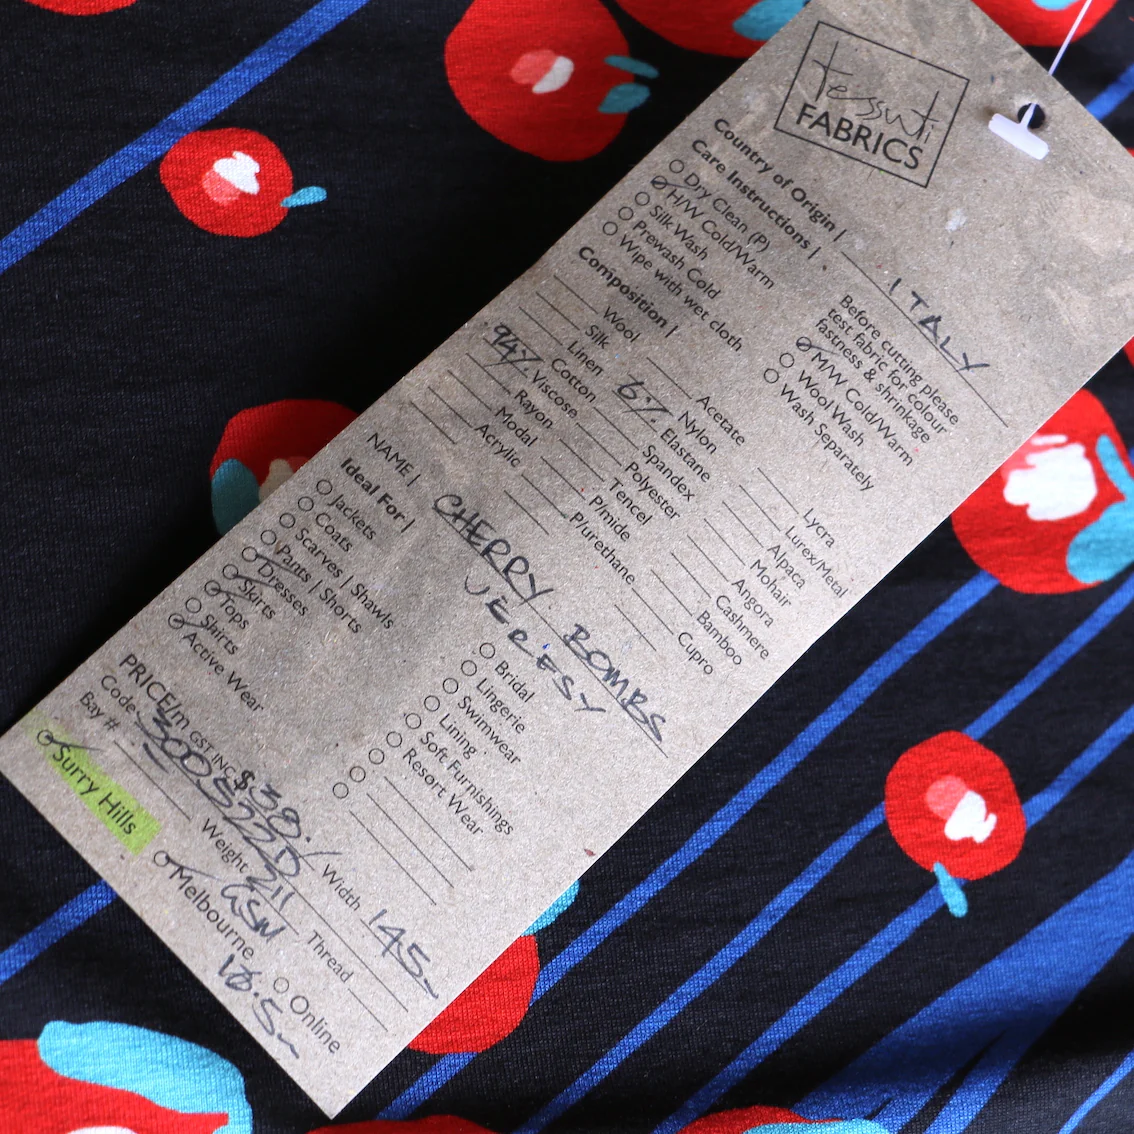 tessuti
FABRICS
Country of Origin | ITALY
Care Instructions |
Dry Clean (P)
H/W Cold/Warm
Silk Wash
Prewash Cold
Wipe with wet cloth
Before cutting please
test fabric for colour
fastness & shrinkage
M/W Cold/Warm
Wool Wash
Wash Separately
Composition |
Wool
Silk
Linen
Cotton
94% Viscose
Rayon
Modal
Acrylic
Acetate
Nylon
6% Elastane
Spandex
Polyester
Tencel
P/mide
P/urethane
Lycra
Lurex/Metal
Alpaca
Mohair
Angora
Cashmere
Bamboo
Cupro
NAME | CHERRY BOMBS
JERSEY
Ideal For |
Jackets
Coats
Scarves | Shawls
Pants | Shorts
Dresses
Skirts
Tops
Shirts
Active Wear
Bridal
Lingerie
Swimwear
Lining
Soft Furnishings
Resort Wear
PRICE/m GST INC $39.
Width 145
Code
Weight 211
GSM
Thread
Bay #
Surry Hills
Melbourne
Online